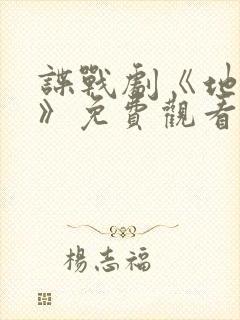 諜戰劇《地
》免費觀看
楊志福